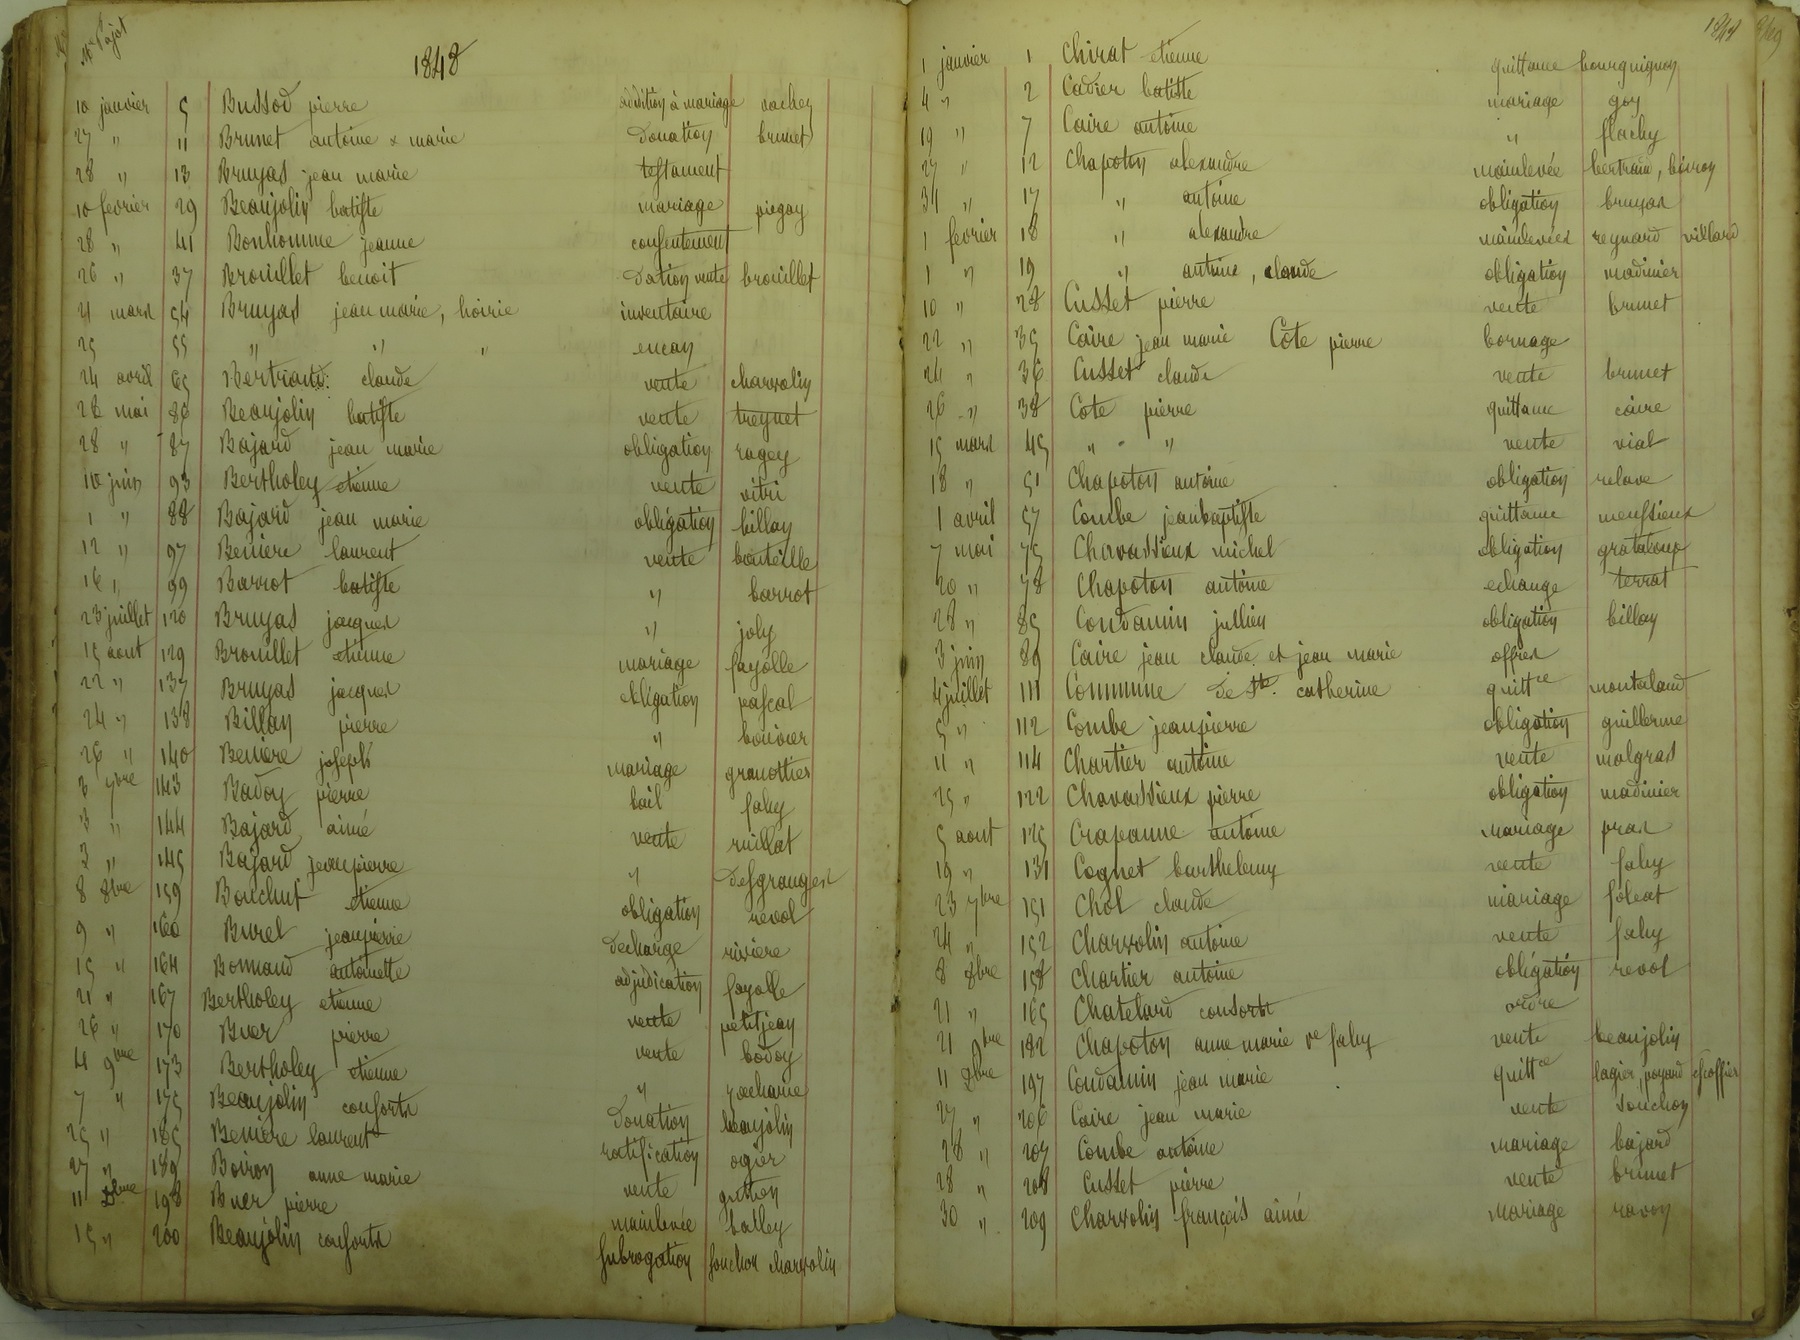 Me Pajot
1848
10 janvier 5 Bussod pierre addition à mariage vachez
27 " 11 Brunet antoine x marie Donation brunet
28 " 13 Bruyas jean marie testament
10 fevrier 29 Beaujolin batiste mariage piegay
28 " 41 Bonhomme jeanne consentement
26 " 37 Brouillet benoit Dation vente brouillet
21 mars 54 Bruyas jean marie, hoirie inventaire
25 55 " " " encan
24 avril 65 Bertrand claude vente charvolin
28 mai 86 Beaujolin batiste vente treynet
28 " 87 Bajard jean marie obligation ragey
10 juin 93 Bertholey etienne vente vitri
1 " 88 Bajard jean marie obligation billay
12 " 97 Beniere laurent vente bouteille
16 " 99 Barrot batiste " barrot
23 juillet 120 Bruyas jacques " joly
15 aout 129 Brouillet etienne mariage fayolle
22 " 137 Bruyas jacques obligation pascal
24 " 138 Billay pierre " bouvier
26 " 140 Beniere joseph mariage granottier
3 7bre 143 Badoy pierre bail fahy
3 " 144 Bajard aimé vente ruillat
3 " 145 Bajard jeanpierre " desgranges
8 8bre 159 Bouchut etienne obligation revol
9 " 160 Burel jeanpierre decharge riviere
15 " 164 Bonnand antoinette adjudication fayolle
21 " 167 Bertholey etienne vente petitjean
26 " 170 Buer pierre vente badoy
4 9bre 173 Bertholey etienne " zacharie
7 " 175 Beaujolin consorts Donation beaujolin
25 " 185 Beniere laurent ratification ogier
27 " 189 Boiron anne marie vente guyon
11 Dbre 198 Buer pierre mainlevée balley
15 " 200 Beaujolin consorts subrogation souchon charvolin
1848
1 janvier 1 Chirat etienne quittance bourguignon
4 " 2 Cadier batiste mariage goy
19 " 7 Caire antoine " flachy
27 " 12 Chapoton alexandre mainlevée bertrand, boiron
31 " 17 " antoine obligation bruyas
1 fevrier 18 " alexandre mainlevées reynard villard
1 " 19 " antoine, claude obligation madinier
10 " 28 Cusset pierre vente brunet
22 " 35 Caire jean marie Côte pierre bornage
24 " 36 Cusset claude vente brunet
26 " 38 Cote pierre quittance caire
15 mars 45 " " " vente vial
18 " 51 Chapoton antoine obligation relave
1 avril 57 Combe jeanbaptiste quittance meussieux
7 mai 75 Chavassieux michel obligation grataloup
20 " 78 Chapoton antoine echange terrat
28 " 85 Condamin jullien obligation billay
3 juin 89 Caire jean claude et jean marie offres
4 juillet 111 Commune de Ste. catherine quittce montaland
5 " 112 Combe jeanpierre obligation guillerme
11 " 114 Chartier antoine vente malgras
25 " 122 Chavassieux pierre obligation madinier
5 aout 125 Crapanne antoine mariage pras
19 " 131 Cognet barthelemy vente fahy
23 7bre 151 Chol claude mariage foleat
24 " 152 Charvolin antoine vente fahy
8 8bre 158 Chartier antoine obligation revol
21 " 165 Chatelard consorts ordre
21 9bre 182 Chapoton anne marie ve fahy vente beaujolin
11 Dbre 197 Condamin jean marie quittce lagier, poyard escoffier
27 " 206 Caire jean marie vente souchon
28 " 207 Combe antoine mariage bajard
28 " 208 Cusset pierre vente brunet
30 " 209 Charvolin françois aimé mariage ravon